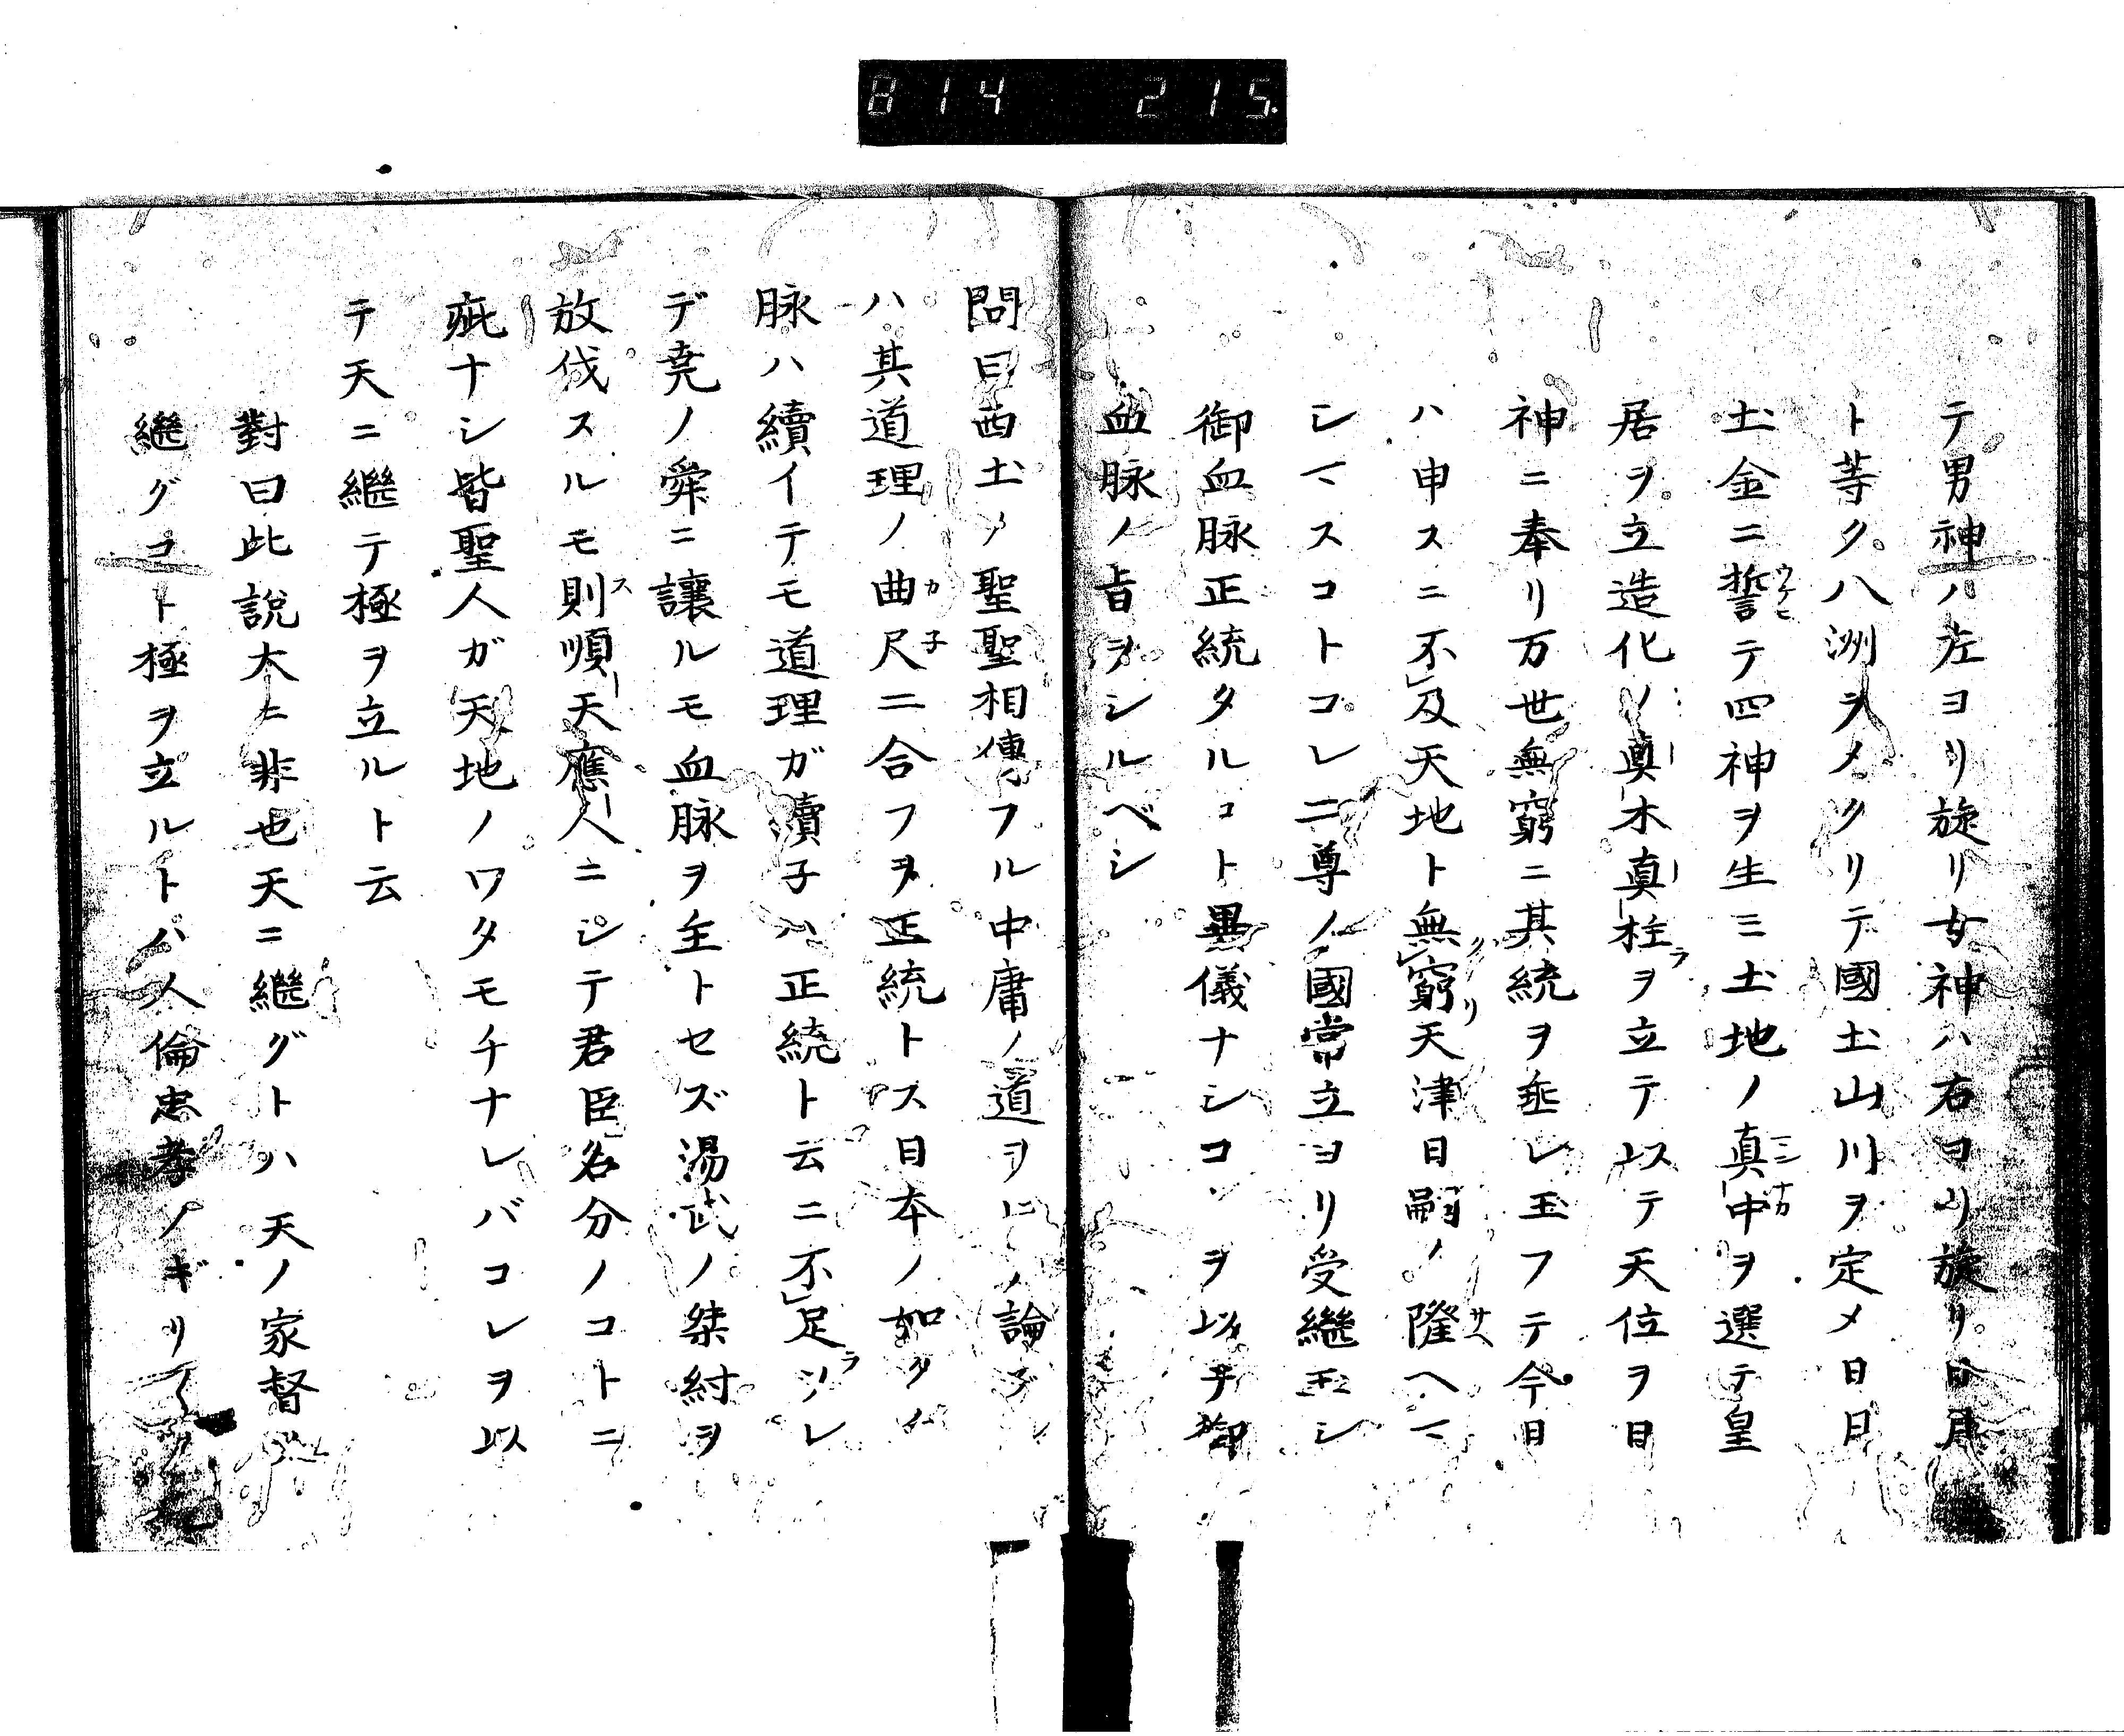 814 215.
テ男神ハ左ヨリ旋リ女神ハ右ヨリ旋リ日月
ト等ク八洲ヲメクリテ國土山川ヲ定メ日月
土金ニ誓テ四神ヲ生ミ土地ノ真中ヲ選テ皇
居ヲ立造化ノ真木真柱ヲ立テ以テ天位ヲ日
神ニ奉リ万世無窮ニ其統ヲ垂レ玉フテ今日
ハ申スニ不及天地ト無窮天津日嗣ノ隆ヘマ
シマスコトコレ二尊ノ國常立ヨリ受繼玉シ
御血脉正統タルコト異儀ナシコヽヲ以テ御
血脉ノ旨ヲシルベシ
問曰西土ノ聖聖相傳フル中庸ノ道ヲ論
ハ其道理ノ曲尺ニ合フヲ正統トス日本ノ如ク
脉ハ續イテモ道理ガ瀆子ハ正統ト云ニ不足ソレ
デ尭ノ舜ニ讓ルモ血脉ヲ主トセズ湯武ノ桀紂ヲ
放伐スルモ則順天應人ニシテ君臣名分ノコトニ
疵ナシ皆聖人ガ天地ノワタモチナレバコレヲ以
テ天ニ繼テ極ヲ立ルト云
對曰此說大ニ非也天ニ繼グトハ天ノ家督
繼グコト極ヲ立ルトハ人倫忠孝ノギリ